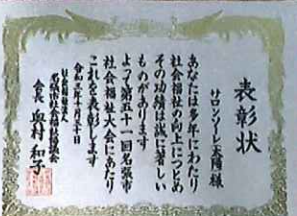 表彰状
サロンソレーユ天陽様
あなたは多年にわたり
社会福祉の向上につとめ
その功績は誠に著しい
ものがあります
よって第五十一回名張市
社会福祉大会にあたり
これを表彰します
令和元年十月二十日
社会福祉法人
名張市社会福祉協議会
会長 奥村和子